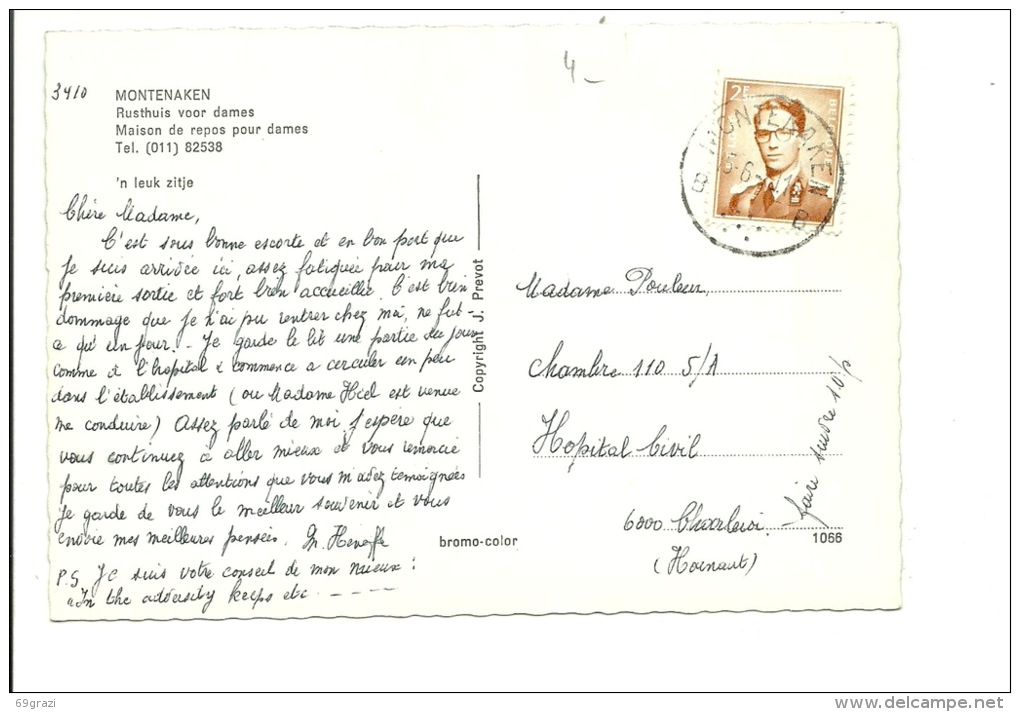 4_
3410
MONTENAKEN
Rusthuis voor dames
Maison de repos pour dames
Tel. (011) 82538
'n leuk zitje
Chère Madame,
C'est sous bonne escorte et en bon port que
je suis arrivée ici, assez fatiguée pour ma
première sortie et fort bien accueillie. C'est bien
dommage que je n'ai pu rentrer chez moi, ne fut-
ce qu'un jour. - Je garde le lit une partie du jour
comme à l'hopital & commence a circuler un peu
dans l'établissement (ou Madame Hiel est venue
me conduire) Assez parlé de moi, j'espère que
vous continuez à aller mieux et vous remercie
pour toutes les attentions que vous m'avez temoignées
Je garde de vous le meilleur souvenir et vous
envoie mes meilleures pensées.
P.S. Je suis votre conseil de mon mieux:
"In the adversity keeps etc - - - -
Copyright J. Prevot
bromo-color
2F
BELGIQUE
MONTENAKEN
B B
Madame Pouleur,
Chambre 110 5/A
Hopital Civil
6000 Charleroi.
(Hainaut)
faire suivre
1066
69grazi
delcampe.net